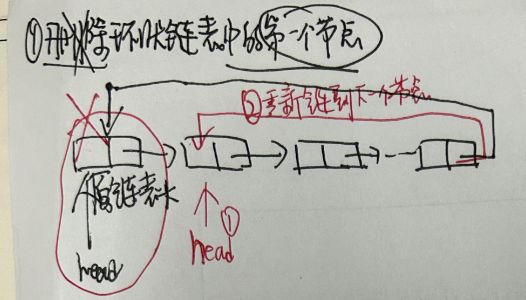 ①删除环状链表中的第一个节点
②重新链到下一个节点
原链表头
head
①
head